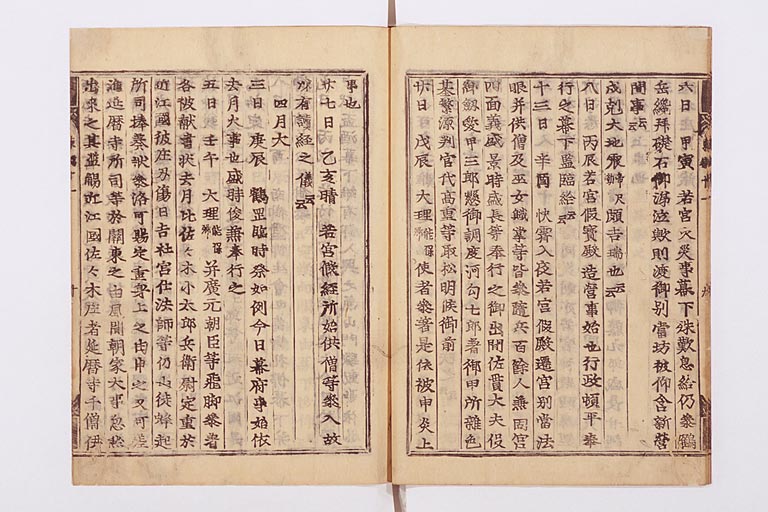 六日 甲寅 若宮火災事幕下殊歎息給仍參鶴
岳纔拜礎石御涕泣歟則渡御別當坊被仰含新營
間事云云
戌剋大地震 頗吉瑞也云云
八日 丙辰若宮假寶殿造營事始也行政頼平奉
行之幕下監臨給云云
十三日 辛酉 快霽入夜若宮假殿遷宮別當法
眼并供僧及巫女職掌等皆參隨兵百餘人兼固宮
四面義盛景時盛長等奉行之御出間佐貫大夫役
御劔愛甲三郎懸御調度河匂七郎著御甲所雜色
基繁源判官代高重等取松明候御前
廿日 戊辰 大理能保卿 使者參著是依被申炎上
事也
廿七日 乙亥晴 若宮假經所始供僧等參入故
以有讀經之儀云云
四月大
三日 庚辰 鶴罡臨時祭如例今日幕府事始依
去月火事也盛時俊兼奉行之
五日 壬午 大理能保卿 并廣元朝臣等飛脚參著
各被献書状去月比佐々木小太郎兵衛尉定重於
近江國彼庄刃傷日吉社宮仕法師等仍山徒蜂起
所司捧奏状參洛可賜定重身上之由申之又可差
進延暦寺所司等於關東之由風聞朝家大事忽然
出來之其濫觴近江國佐々木庄者延暦寺千僧供